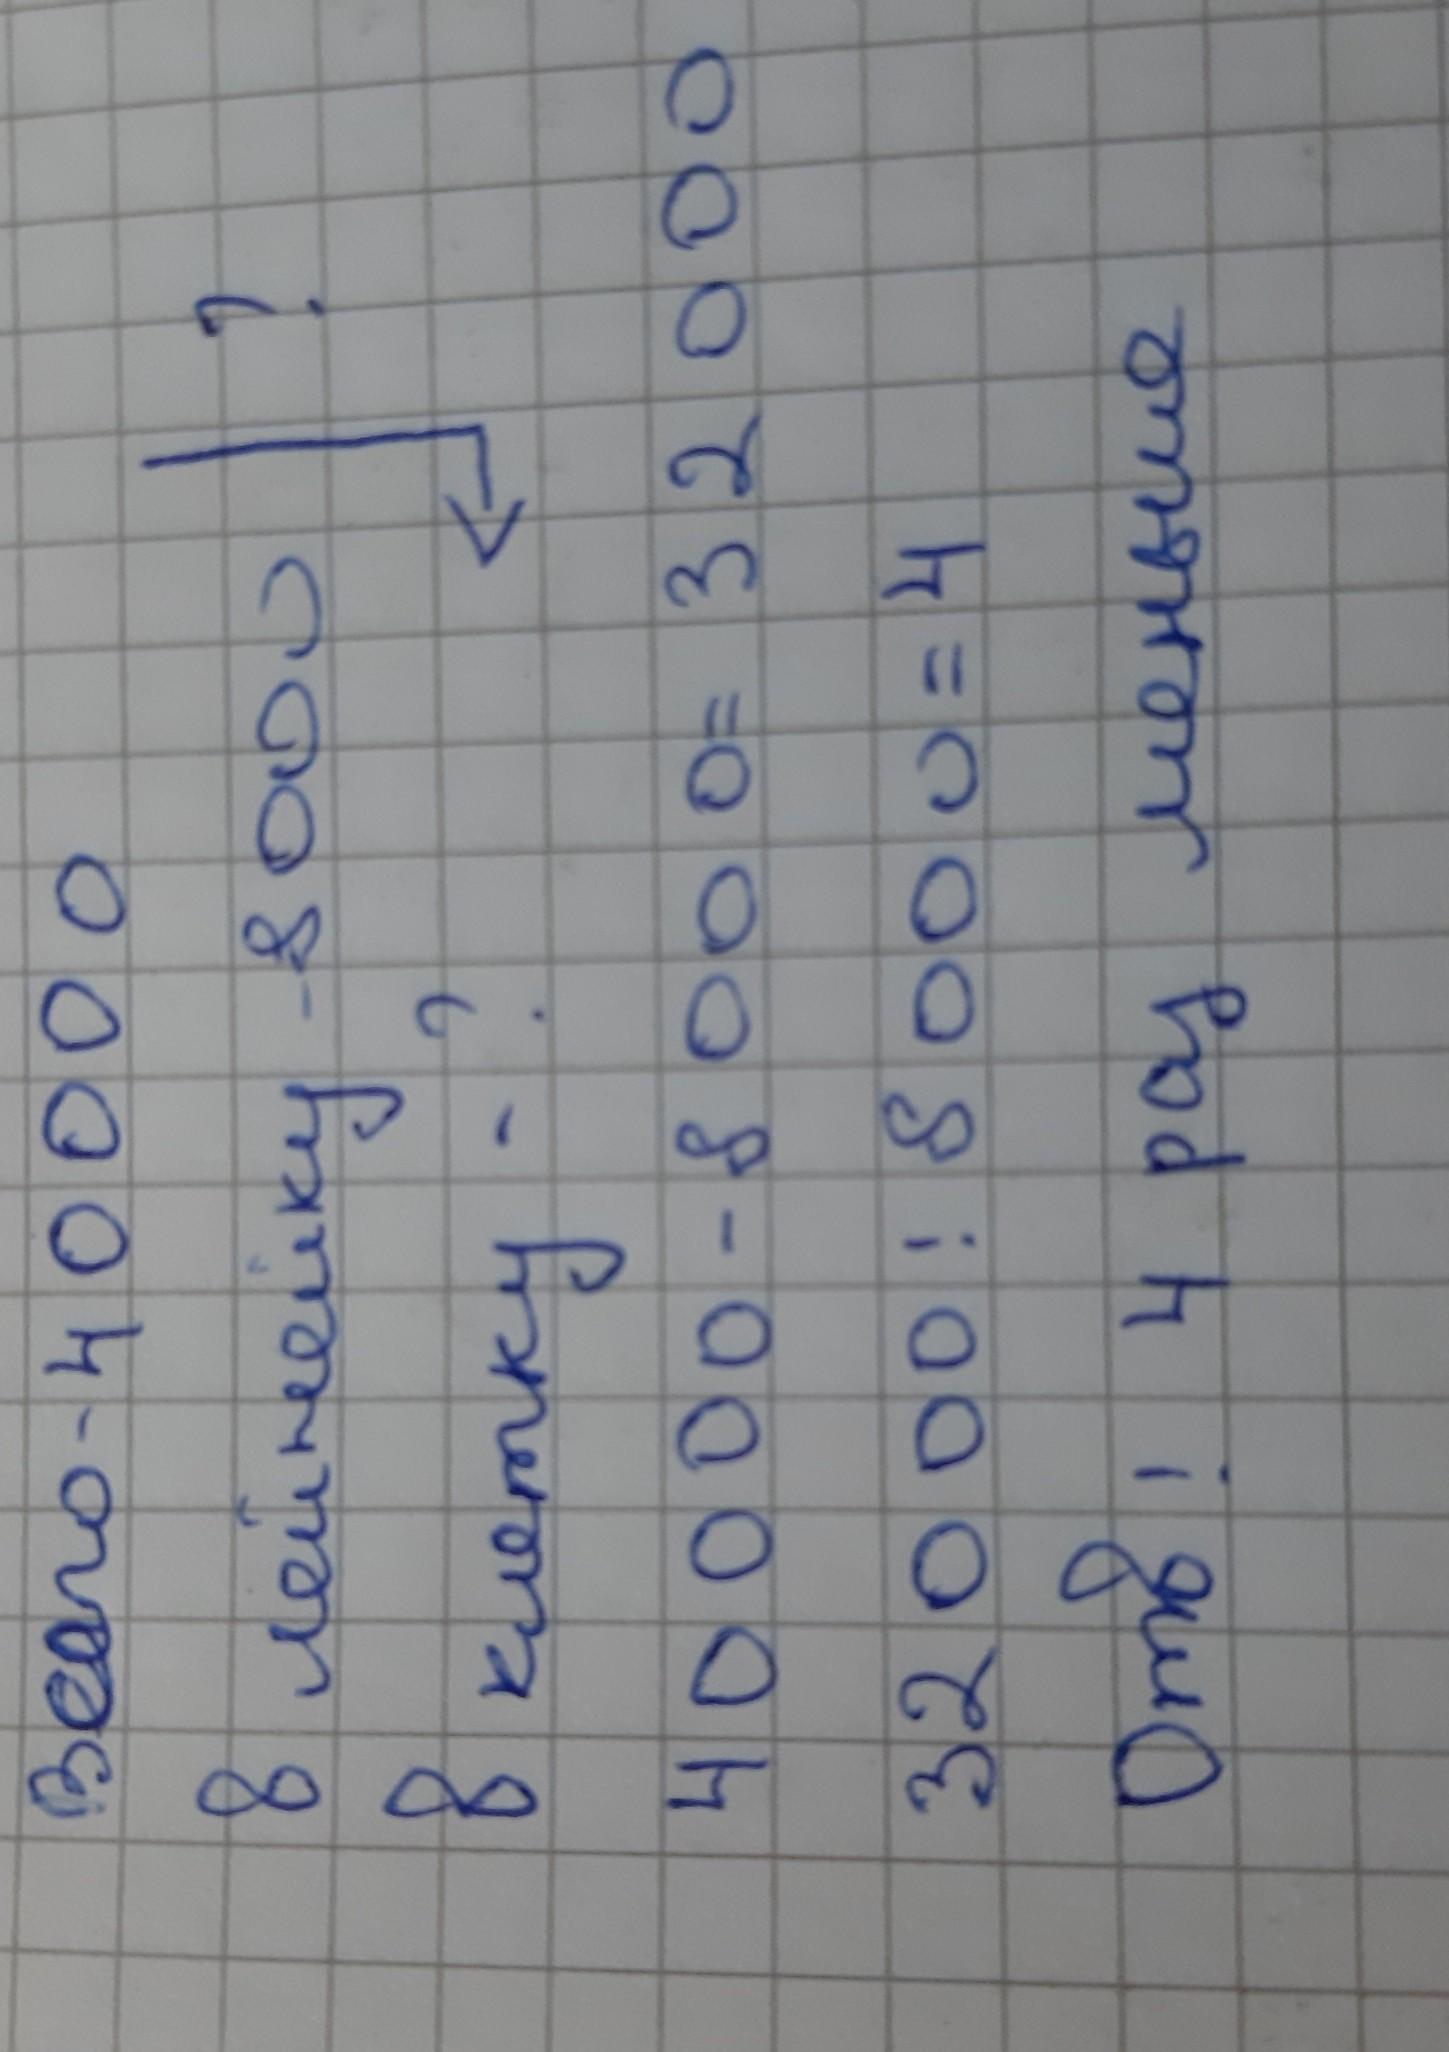 Всего-40000
В линейку -8000 ?
В клетку - ?
40000-8000=32000
32000:8000=4
Отв: 4 раз меньше